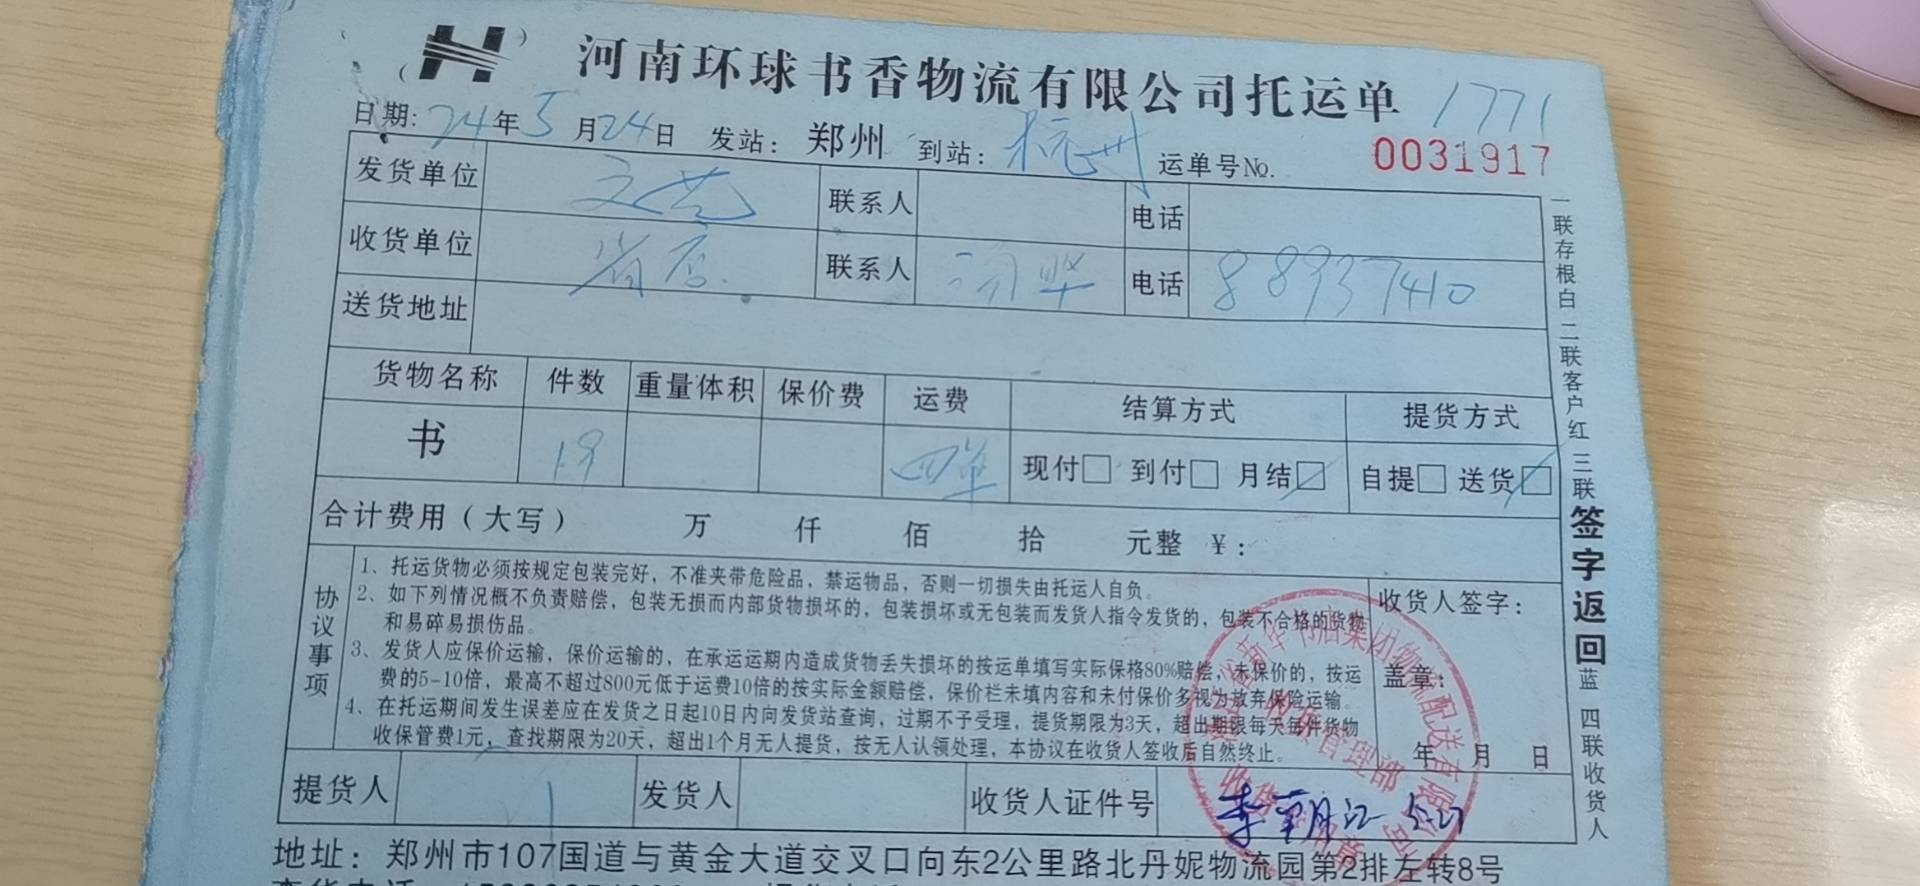 河南环球书香物流有限公司托运单 1771
日期: 24年5月24日 发站: 郑州 到站: 杭州 运单号No. 0031917
发货单位 文艺 联系人 电话
收货单位 省店. 联系人 电话 88937410
送货地址
货物名称 件数 重量体积 保价费 运费 结算方式 提货方式
书 19 四单 现付□ 到付□ 月结☑ 自提□ 送货☑
合计费用(大写) 万 仟 佰 拾 元整 ¥:
协议事项
1、托运货物必须按规定包装完好，不准夹带危险品，禁运物品，否则一切损失由托运人自负。
2、如下列情况概不负责赔偿，包装无损而内部货物损坏的，包装损坏或无包装而发货人指令发货的，包装不合格的货物
和易碎易损伤品。
3、发货人应保价运输，保价运输的，在承运运期内造成货物丢失损坏的按运单填写实际保格80%赔偿，未保价的，按运
费的5-10倍，最高不超过800元低于运费10倍的按实际金额赔偿，保价栏未填内容和未付保价多视为放弃保险运输。
4、在托运期间发生误差应在发货之日起10日内向发货站查询，过期不予受理，提货期限为3天，超出期限每天每件货物
收保管费1元，查找期限为20天，超出1个月无人提货，按无人认领处理，本协议在收货人签收后自然终止。
收货人签字:
盖章:
年 月 日
提货人 发货人 收货人证件号
地址: 郑州市107国道与黄金大道交叉口向东2公里路北丹妮物流园第2排左转8号
一联存根白 二联客户红 三联签字返回蓝 四联收货人